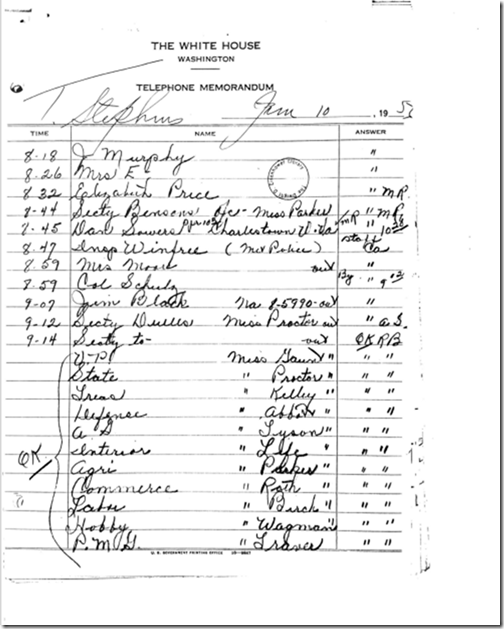 THE WHITE HOUSE
WASHINGTON
TELEPHONE MEMORANDUM
T. Stephens Jan 10 , 19 55
TIME NAME ANSWER
8-18 J Murphy "
8-26 Mrs E "
8 32 Elizabeth Price " M.R.
8-44 Secty Bensons' ofc - Miss Parker "
8-45 Dan Sowers Charlestown W. Va "
8.47 Insp Winfree (Met Police)
8.59 Mrs Moore out "
8.59 Col Schulz "
9-07 Jim Black Na 8-5990-out "
9-12 Secty Dulles Miss Proctor out " a.S.
9-14 Secty to- out OK RB
V.P. Miss Gaunt " " "
State " Proctor " " "
Treas " Kelley " " "
Defense " Abbott " " "
A G " Tyson " " "
Interior " " " "
OK
Agri " Parker " " "
Commerce " Roth " " "
Labor " Birch " " "
Hobby " Wagman " " "
P.M.G. " Traver " "
U. S. GOVERNMENT PRINTING OFFICE